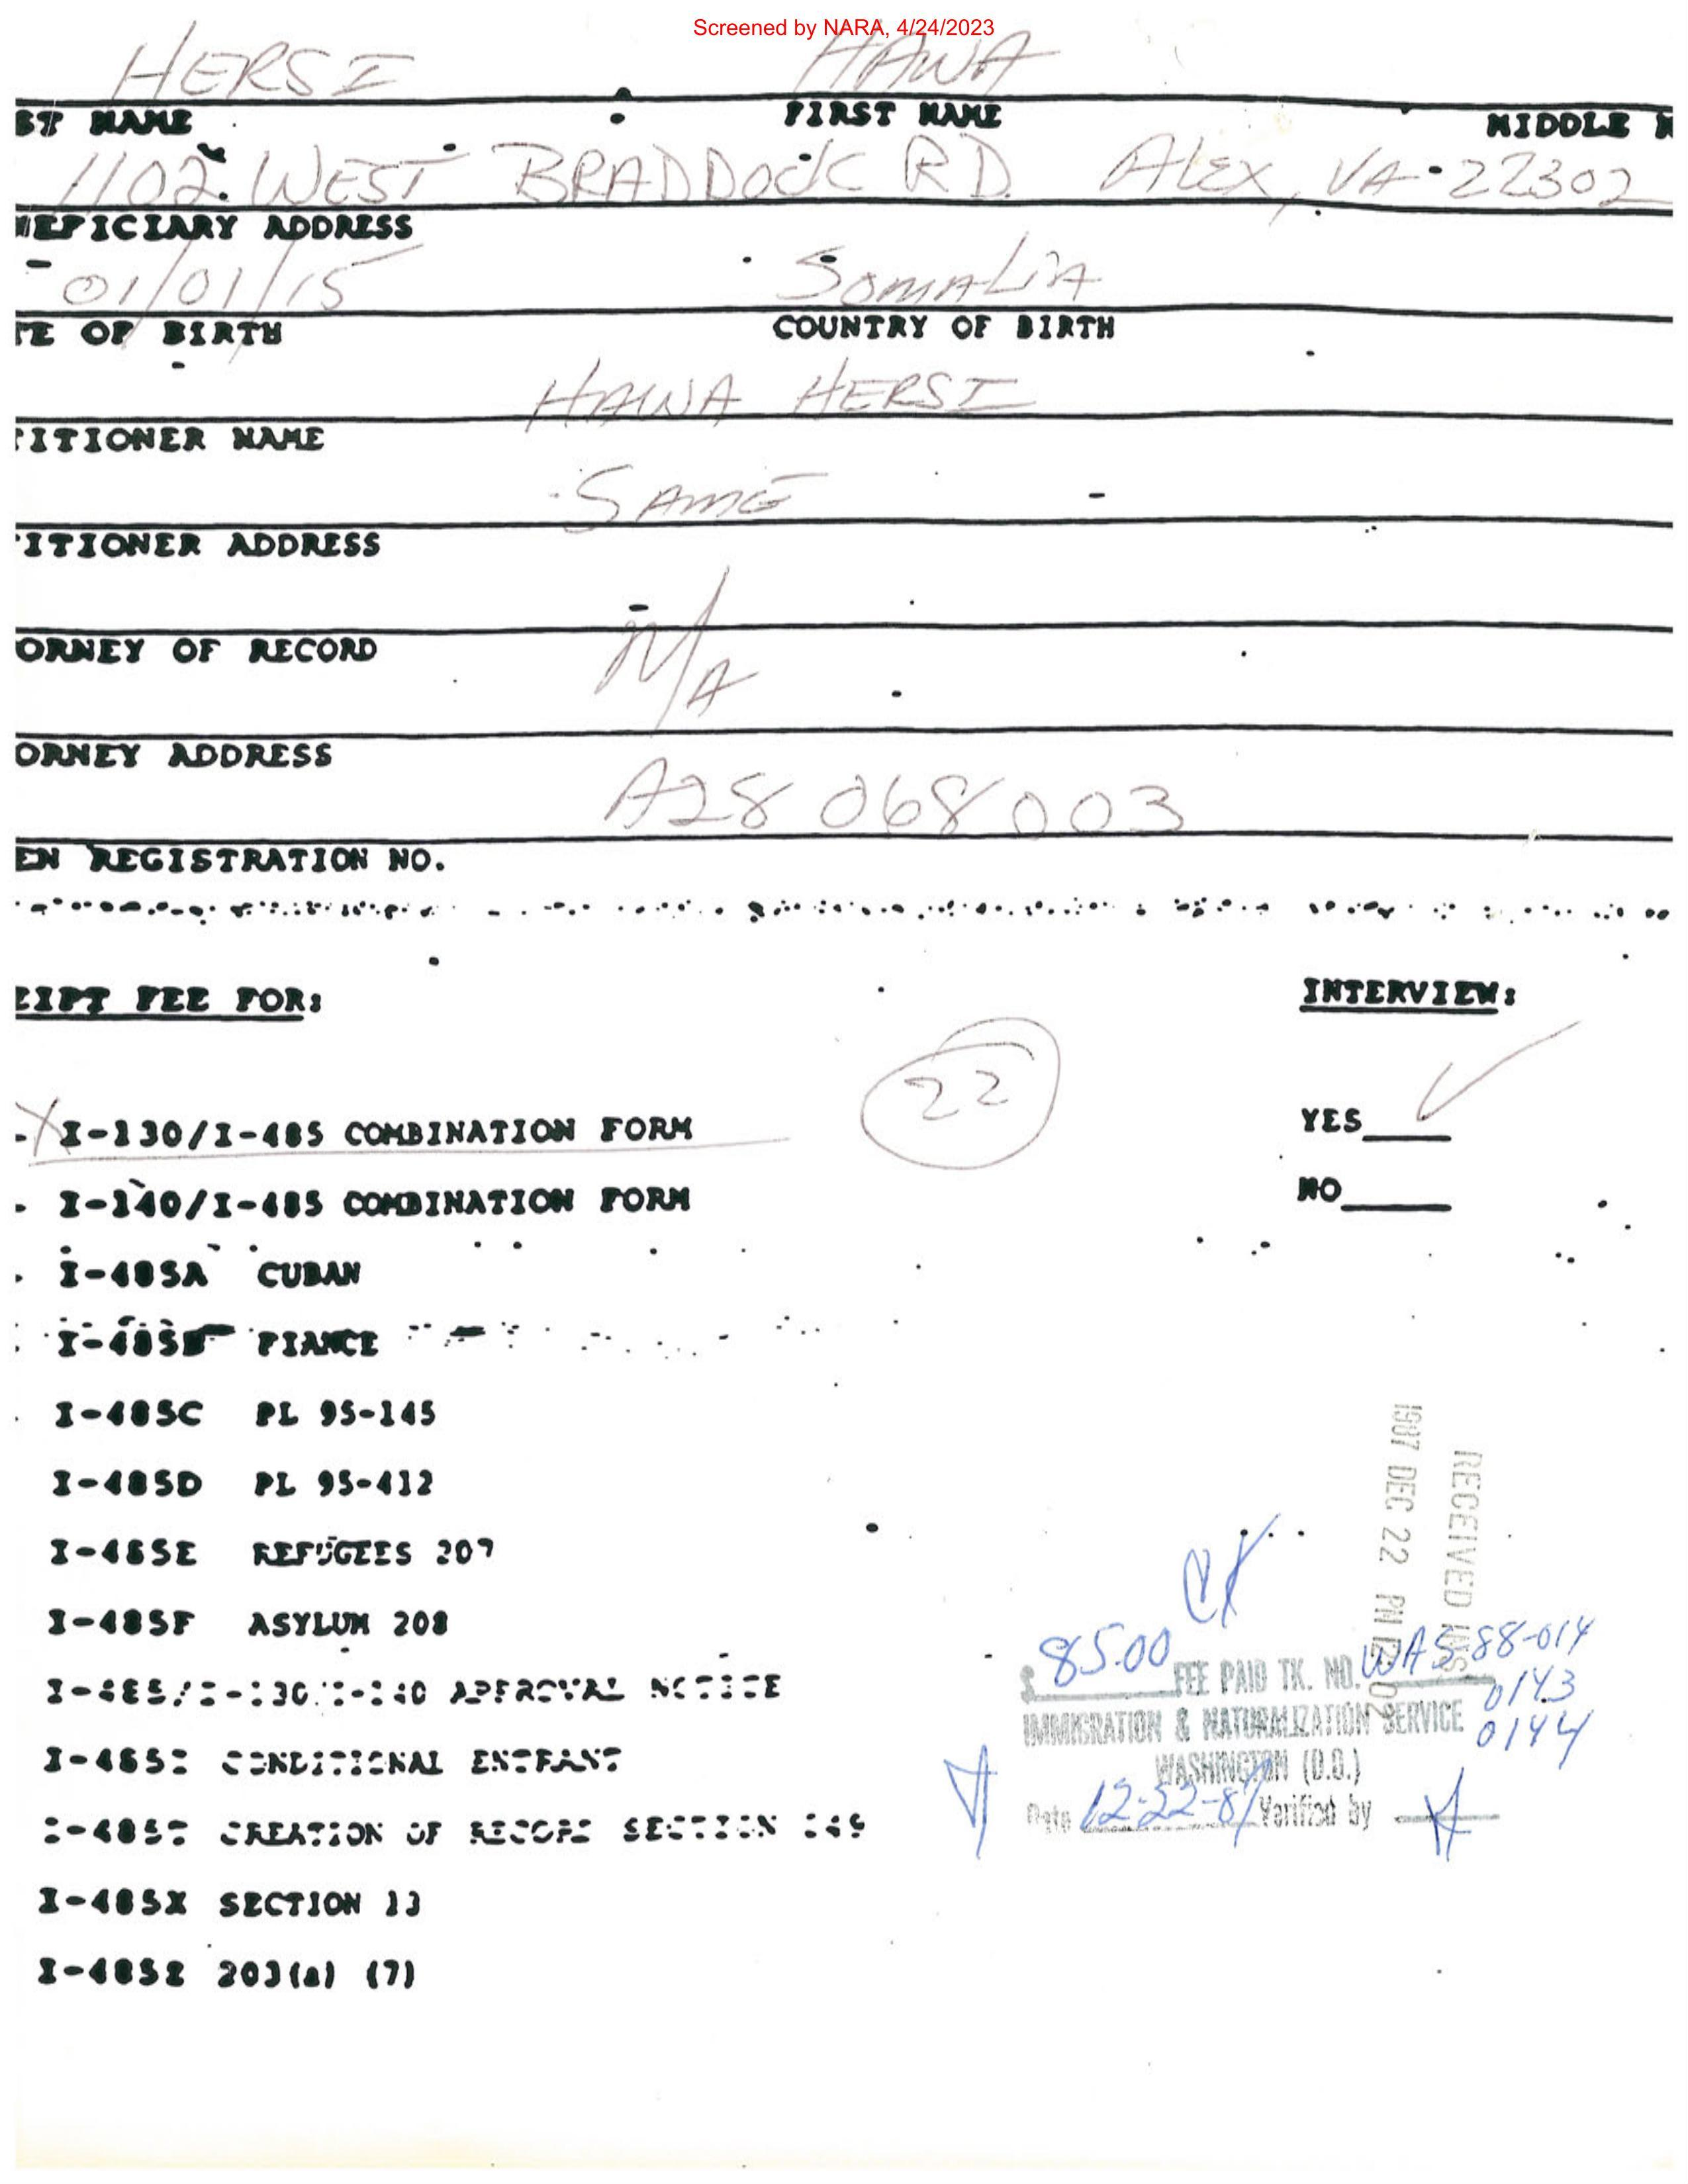 Screened by NARA, 4/24/2023
HERSI HAWA
ST NAME FIRST NAME MIDDLE N
1102 WEST BRADDOCK RD. ALEX, VA 22302
NEFICIARY ADDRESS
01/01/15 SOMALIA
TE OF BIRTH COUNTRY OF BIRTH
HAWA HERSI
TITIONER NAME
SAME
TITIONER ADDRESS
ORNEY OF RECORD
N/A
ORNEY ADDRESS
A28 068 003
EN REGISTRATION NO.
EIPT FEE FOR: INTERVIEW:
22
X I-130/I-485 COMBINATION FORM YES ✓
I-140/I-485 COMBINATION FORM NO
I-485A CUBAN
I-485B FIANCE
I-485C PL 95-145
I-485D PL 95-412
I-485E REFUGEES 207
I-485F ASYLUM 208
I-485/I-130/I-140 APPROVAL NOTICE
CONDITIONAL ENTRANT
CREATION OF RECORD SECTION 249
I-485X SECTION 13
I-485Z 203(a) (7)
RECEIVED INS
1987 DEC 22 PM 12 02
$ 85.00 FEE PAID TK. NO. WAS-88-014
0143
IMMIGRATION & NATURALIZATION SERVICE 0144
WASHINGTON (D.O.)
Date 12-22-87 Verified by